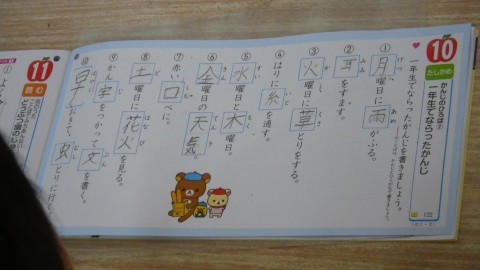 10
たしかめ
かん字のひろば②
一年生でならったかんじ
一年生でならったかんじを書きましょう。
① 月曜日に雨がふる。
② 耳をすます。
③ 火曜日に草とりをする。
④ はりに糸を通す。
⑤ 水曜日と木曜日。
⑥ 金曜日の天気。
⑦ 赤い口べに。
⑧ 土曜日に花火を見る。
⑨ かん字をつかって文を書く。
⑩ 早おきして、虫とりに行
11
読む